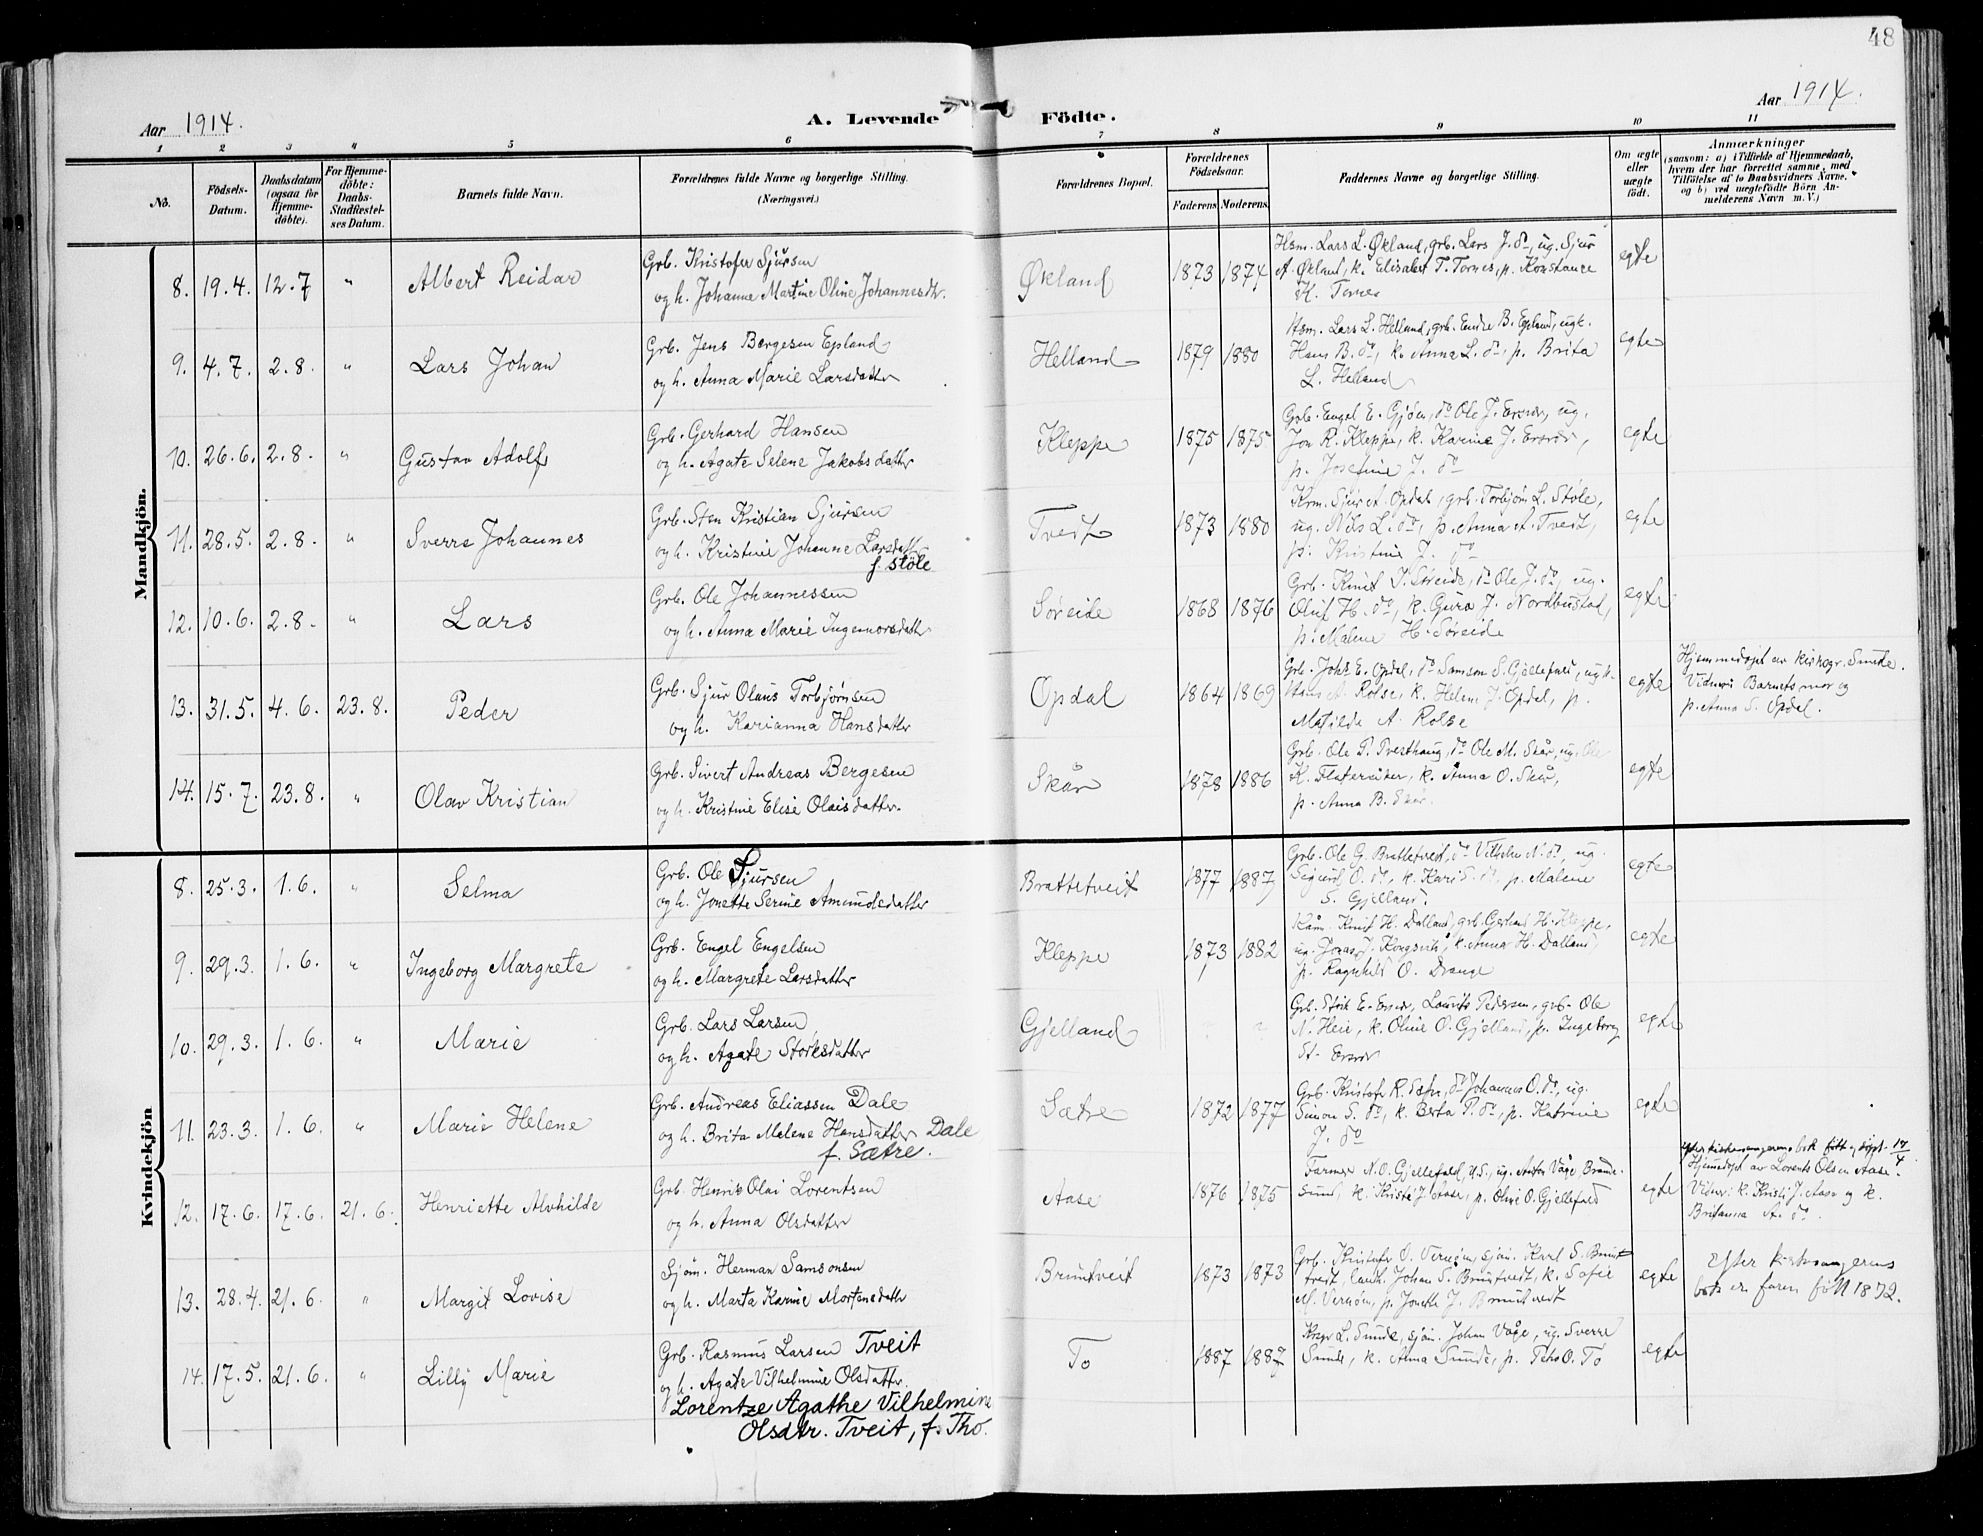 48
Aar 1914.
A. Levende Födte.
Aar 1914.
1 2 3 4 5 6 7 8 9 10 11
No.
Födsels-Datum.
Daabsdatum (ogsaa for Hjemme-döbte).
For Hjemme-döbte: Daabs-Stadfæstel-ses Datum.
Barnets fulde Navn.
Forældrenes fulde Navne og borgerlige Stilling. (Næringsvei.)
Forældrenes Bopæl.
Forældrenes Födselsaar.
Faderens Moderens.
Faddernes Navne og borgerlige Stilling.
Om ægte eller uægte födt.
Anmærkninger
(saasom: a) i Tilfælde af Hjemmedaab, hvem der har forrettet samme, med Tilföielse af to Daabsvidners Navne. og b) ved uægtefödte Börn An-melderens Navn m. V.)
Mandkjön.
8. 19.4. 12.7 " Albert Reidar
Grb. Kristofer Sjursen
og h. Johanne Martine Oline Johannesdtr.
Økland 1873 1874
Hsm. Lars L. Økland, grb. Lars J. do, ug. Sjur
A. Økland, k. Elisabet T. Tornes, p. Konstanse
K. Tornes
egte
9. 4.7. 2.8. " Lars Johan
Grb. Jens Bergesen Epland
og h. Anna Marie Larsdatter
Helland 1879 1880
Hsm. Lars L. Helland, grb. Endre B. Epland, ugk.
Hans B. do, k. Anna L. do, p. Brita
L. Helland
egte
10. 26.6. 2.8. " Gustav Adolf
Grb. Gerhard Hansen
og h. Agate Selene Jakobsdatter
Kleppe 1875 1875
Grb. Engel E. Gjøen, do Ole J. , ug.
Jon R. Kleppe, k. Karine J. ,
p. Josefine J. do
egte
11. 28.5. 2.8. " Sverre Johannes
Grb. Sten Kristian Sjursen
og h. Kristine Johanne Larsdatter
f. Støle
Tveit 1873 1880
Sjur A. Opdal, grb. Torbjørn L. Støle,
ug. Nils L. do, p. Anna A. Tveit,
p. Kristine J. do
egte
12. 10.6. 2.8. " Lars
Grb. Ole Johannessen
og h. Anna Marie Ingemorsdatter
Søreide 1868 1876
Grb. Knut J. Søreide, do Ole J. do, ug.
Oluf H. do, k. Guro J. Nordhustad,
p. Malene H. Søreide
egte
13. 31.5. 4.6. 23.8. Peder
Grb. Sjur Olaus Torbjørnsen
og h. Karianna Hansdatter
Opdal 1864 1869
Grb. Johs E. Opdal, do Samson S. Gjellefald, ugk.
Hans A. Rolse, k. Helene J. Opdal, p.
Matilde A. Rolse
egte
Hjemmedøpt av kirkegr. Sunde.
Vidner: Barnets mor og
p. Anna S. Opdal.
14. 15.7. 23.8. " Olav Kristian
Grb. Sivert Andreas Bergesen
og h. Kristine Elise Olaisdatter.
Skår 1878 1886
Grb. Ole P. Tvesthaug, do Ole M. Skår, ug. Ole
K. Flateråker, k. Anna O. Skår,
p. Anna B. Skår.
egte
Kvindekjön
8. 25.3. 1.6. " Selma
Grb. Ole Sjursen
og h. Jonette Serine Amundsdatter
Brattetveit 1877 1887
Grb. Ole G. Brattetveit, do Vilhelm N. do, ug.
Sigurd O. do, k. Kari S. do, p. Malene
S. Gjelland.
egte
9. 29.3. 1.6. " Ingeborg Margrete
Grb. Engel Engelsen
og h. Margrete Larsdatter
Kleppe 1873 1882
Knut H. Dalland, grb. Gerhard H. Kleppe,
ug. Jonas J. Kongsvik, k. Anna H. Dalland
p. Ragnhild O. Drange
egte
10. 29.3. 1.6. " Marie
Grb. Lars Larsen
og h. Agate Storksdatter
Gjelland " "
Grb. Stork E. , Laurits Pedersen, grb. Ole
N. Heie, k. Oline O. Gjelland, p. Ingeborg
St.
egte
11. 23.3. 1.6. " Marie Helene
Grb. Andreas Eliassen Dale
og h. Brita Malene Hansdatter Dale
f. Sætre.
Sætre 1872 1877
Grb. Kristofer R. Sætre, do Johannes O. do, ug.
Simon S. do, k. Berta P. do, p. Katrine
J. do
egte
12. 17.6. 17.6. 21.6. Henriette Alvhilde
Grb. Henrik Olai Lorentsen
og h. Anna Olsdatter
Aase 1876 1875
Farmer N. O. Gjellefald, U.S., ug. Anton Våge, Brande-
sund, k. Kristi J. Aase, p. Olivi O. Gjellefald
egte
efter kirkesangerens bok født og døpt 17/4.
Hjemdøpt av Lorents Olsen Aase.
Vidner: k. Kristi J. Aase og k.
Britanna A. do.
13. 28.4. 21.6. " Margit Lovise
Sjøm. Herman Samsonsen
og h. Marta Karine Mortensdatter
Bruntveit 1873 1873
Grb. Kristofer O. Vernøen, sjøm. Karl S. Brunt-
tveit, landh. Johan S. Bruntveit, k. Sofie
M. Vernøen, p. Jonette J. Bruntveit
egte
Efter kirkesangerens
bok er faren født 1872.
14. 17.5. 21.6. " Lilly Marie
Grb. Rasmus Larsen Tveit
og h. Agate Vilhelmine Olsdatter.
Lorentze Agathe Vilhelmine
Olsdtr. Tveit, f. Tho.
To 1887 1887
L. Sunde, sjøm. Johan Våge, ug. Sverre
Sunde, k. Anna Sunde, p. O. To
egte